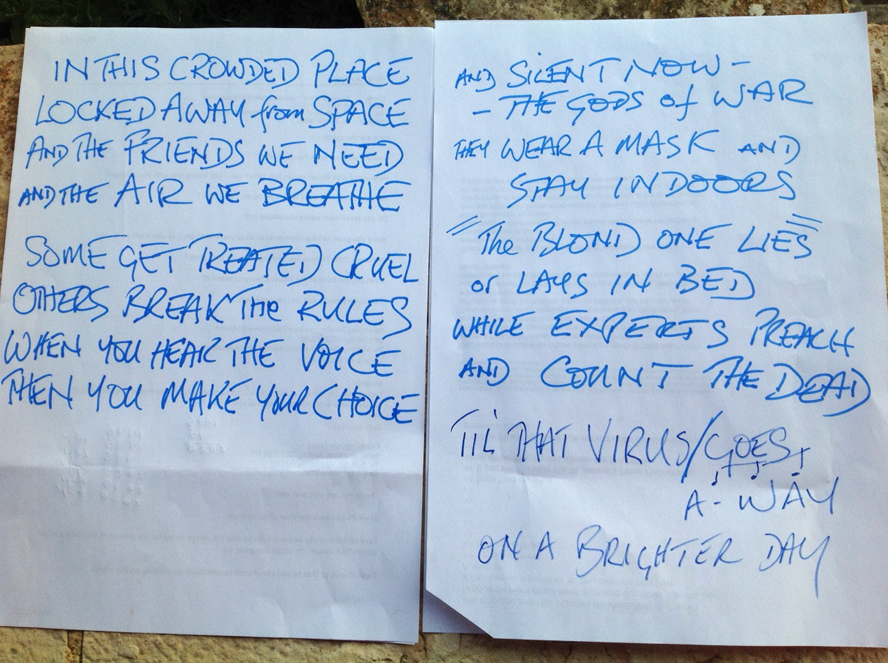 IN THIS CROWDED PLACE
LOCKED AWAY from SPACE
AND THE FRIENDS WE NEED
AND THE AIR WE BREATHE
SOME GET TREATED CRUEL
OTHERS BREAK THE RULES
WHEN YOU HEAR THE VOICE
THEN YOU MAKE YOUR CHOICE
AND SILENT NOW -
- THE GODS of WAR
THEY WEAR A MASK AND
STAY INDOORS
"The BLOND ONE LIES"
or LAYS IN BED
WHILE EXPERTS PREACH
AND COUNT THE DEAD
TIL' THAT VIRUS/GOES
A-WAY
ON A BRIGHTER DAY